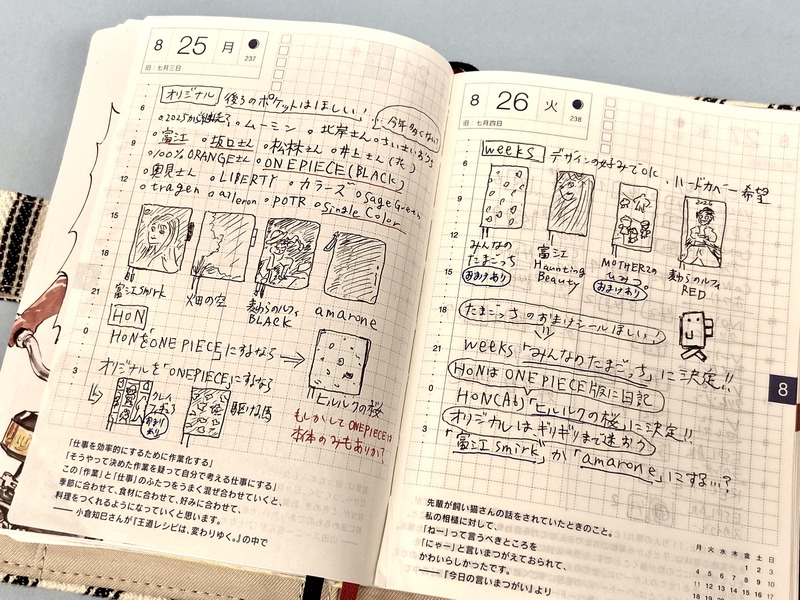 8 25 月
237
旧:七月三日
オリジナル 後ろのポケットはほしい!
今年多くない?
○2025から継続して ○ムーミン ○北岸さん ○ちいさいおうち
○富江 ○坂口さん ○松林さん ○井上さん(花)
○100%ORANGEさん ○ONE PIECE(BLACK)
○奥見さん ○LIBERTY ○カラーズ ○Sage Green
○tragen ○arlemon ○POTR ○Single Color
富江smirk
畑の空
麦わらのルフィ
BLACK
amarone
HON
HONを「ONE PIECE」にするなら→
ヒルルクの桜
オリジナルを「ONE PIECE」にするなら
おまけあり
駆ける馬
もしかしてONE PIECEは
本体のみもありか?
6
9
12
15
18
21
0
3
「仕事を効率的にするために作業化する」
「そうやって決めた作業を疑って自分で考える仕事にする」
この「作業」と「仕事」のふたつをうまく混ぜ合わせていくと、
季節に合わせて、食材に合わせて、好みに合わせて、
料理をつくれるようになっていくと思います。
——小倉知巳さんが『王道レシピは、変わりゆく。』の中で
8 26 火
238
旧:七月四日
weeks デザインの好みでOK、ハードカバー希望
みんなの
たまごっち
おまけあり
富江
Haunting
Beauty
MOTHER2の
ひみつ。
おまけあり
2026
麦わらのルフィ
RED
たまごっちのおまけシールほしい!
weeks「みんなのたまごっち」に決定!!
HONはONE PIECE版に日記
HON(A6)「ヒルルクの桜」に決定!!
オリジナルはギリギリまで迷おう
「富江smirk」か「amarone」にする…?
6
9
12
15
18
21
0
3
8
先輩が飼い猫さんの話をされていたときのこと。
私の相槌に対して、
「ねー」って言うべきところを
「にゃー」と言いまつがえておられて、
かわいらしかったです。
——『今日の言いまつがい』より
月 火 水 木 金 土 日
1 2 3
4 5 6 7 8 9 10
11 12 13 14 15 16 17
18 19 20